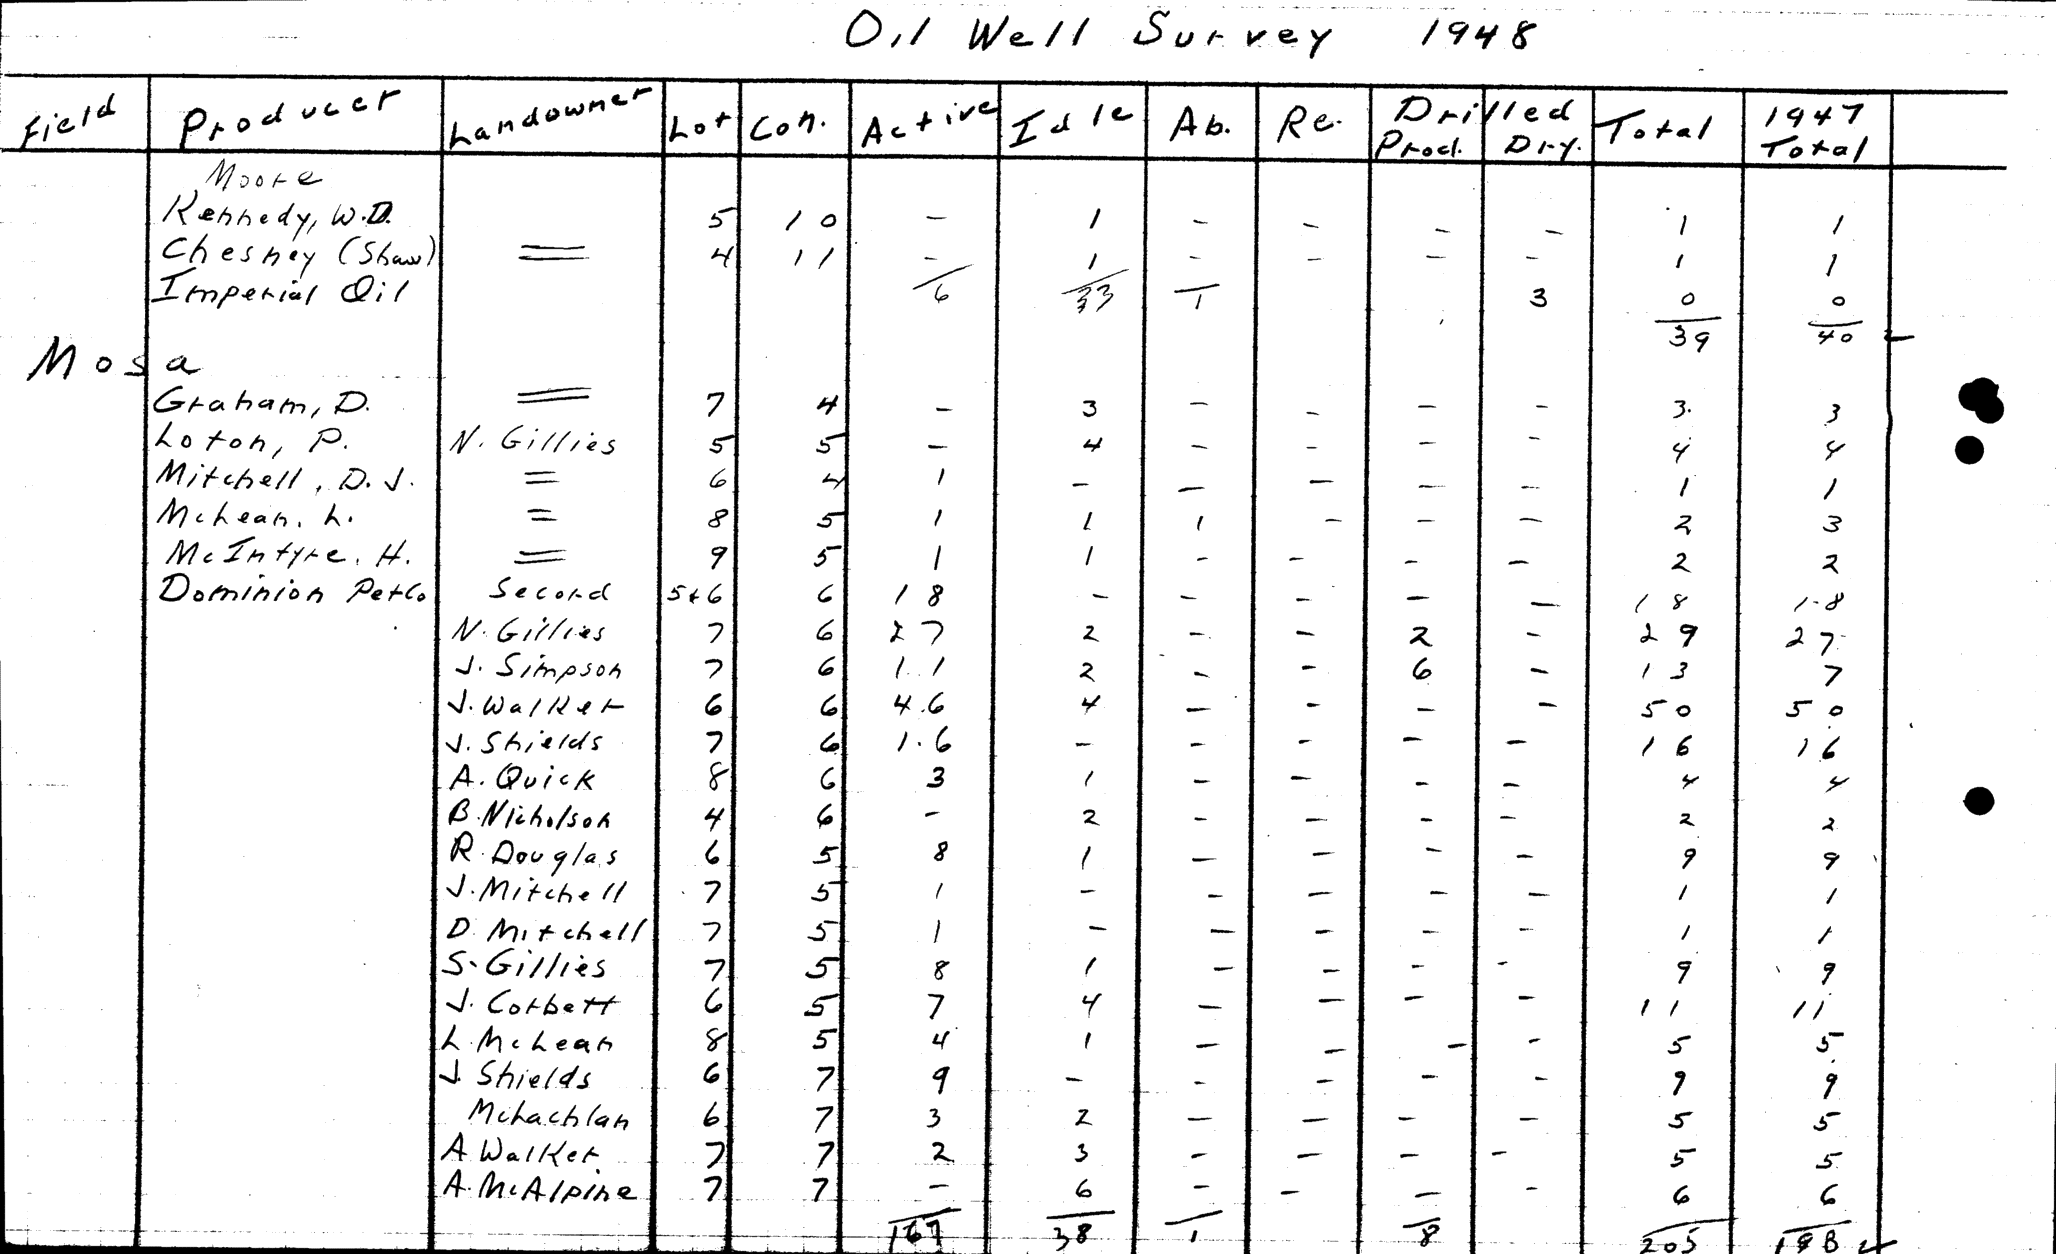 Oil Well Survey 1948
Field Producer Landowner Lot Con. Active Idle Ab. Re. Drilled Prod. Dry. Total 1947 Total
Moore
Kennedy, W.D. 5 10 - 1 - - - - 1 1
Chesney (Shaw) = 4 11 - 1 - - - - 1 1
Imperial Oil 6 33 1 3 0 0
39 40
Mosa
Graham, D. = 7 4 - 3 - - - - 3 3
Loton, P. N. Gillies 5 5 - 4 - - - - 4 4
Mitchell, D. J. = 6 4 1 - - - - - 1 1
McLean, L. = 8 5 1 1 1 - - - 2 3
McIntyre, H. = 9 5 1 1 - - - - 2 2
Dominion Pet Co Second 5+6 6 18 - - - - - 18 18
N. Gillies 7 6 27 2 - - 2 - 29 27
J. Simpson 7 6 11 2 - - 6 - 13 7
J. Walker 6 6 46 4 - - - - 50 50
J. Shields 7 6 16 - - - - - 16 16
A. Quick 8 6 3 1 - - - - 4 4
B. Nicholson 4 6 - 2 - - - - 2 2
R. Douglas 6 5 8 1 - - - - 9 9
J. Mitchell 7 5 1 - - - - - 1 1
D. Mitchell 7 5 1 - - - - - 1 1
S. Gillies 7 5 8 1 - - - - 9 9
J. Corbett 6 5 7 4 - - - - 11 11
L. McLean 8 5 4 1 - - - - 5 5
J. Shields 6 7 9 - - - - - 9 9
McLachlan 6 7 3 2 - - - - 5 5
A Walker 7 7 2 3 - - - - 5 5
A. McAlpine 7 7 - 6 - - - - 6 6
167 38 1 8 205 198